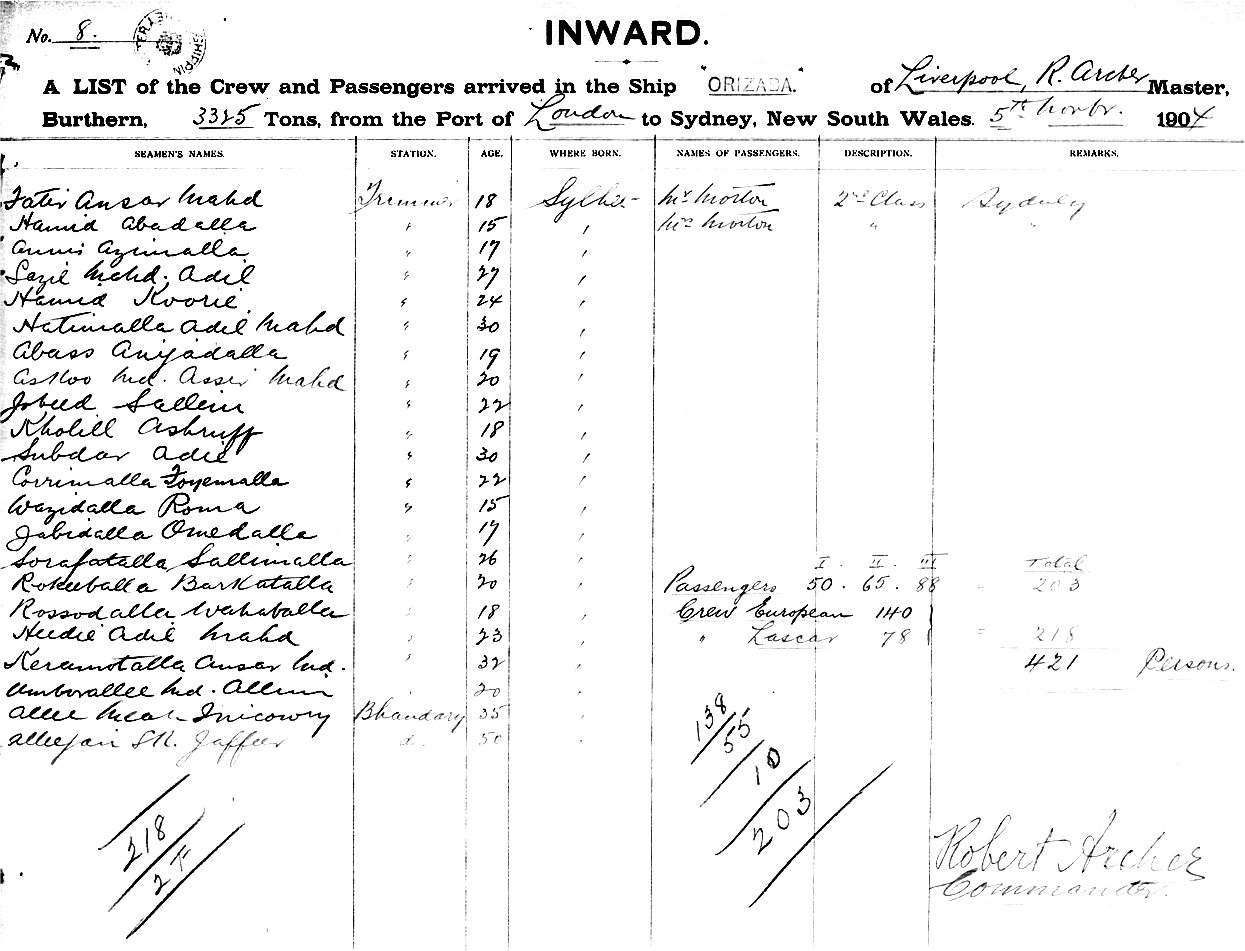 No. 8.
INWARD.
A LIST of the Crew and Passengers arrived in the Ship "ORIZABA." of Liverpool, R. Archer Master,
Burthern, 3325 Tons, from the Port of London to Sydney, New South Wales. 5th Novbr. 1904
SEAMEN'S NAMES. STATION. AGE. WHERE BORN. NAMES OF PASSENGERS. DESCRIPTION. REMARKS.
Fatir Ansar Mahd Trimmer 18 Sylhet Mr Morton 2nd Class Sydney
Hamid Abadalla " 15 " Mrs Morton " "
Annis Azimalla " 17 "
Lazil Mahd. Adil " 27 "
Hamid Koorie " 24 "
Hatimalla Adil Mahd " 30 "
Abass Anjadalla " 19 "
Askoo Md. Asser Mahd " 20 "
Jobed Sallim " 22 "
Kholill Ashruff " 18 "
Subdar Adil " 30 "
Corrimalla Foyemalla " 22 "
Wazidalla Roma " 15 "
Jabidalla Omedalla " 17 "
Sorafatalla Sallimalla " 26 " I. II. III Total
Rokeeballa Barkatalla " 20 " Passengers 50. 65. 88 = 203
Rossodalla Wahaballa " 18 " Crew European 140
Heedie Adil Mahd " 23 " " Lascar 78 } = 218
Keramotalla Ansar Md. " 32 " 421 Persons.
Umborallee Md. Allim " 20 "
Allee Meah Bhandary 35 "
Alleejan Sk. Jaffer d. 50 "
138
55
10
203
218
27
Robert Archer
Commander.